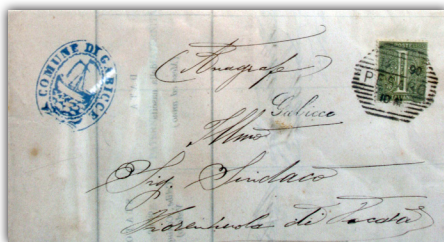 COMUNE DI GABICCE
Anagrafe
Gabicce
Illmo
Sig. Sindaco
Fiorenzuola di Focara
90
PESARO
10